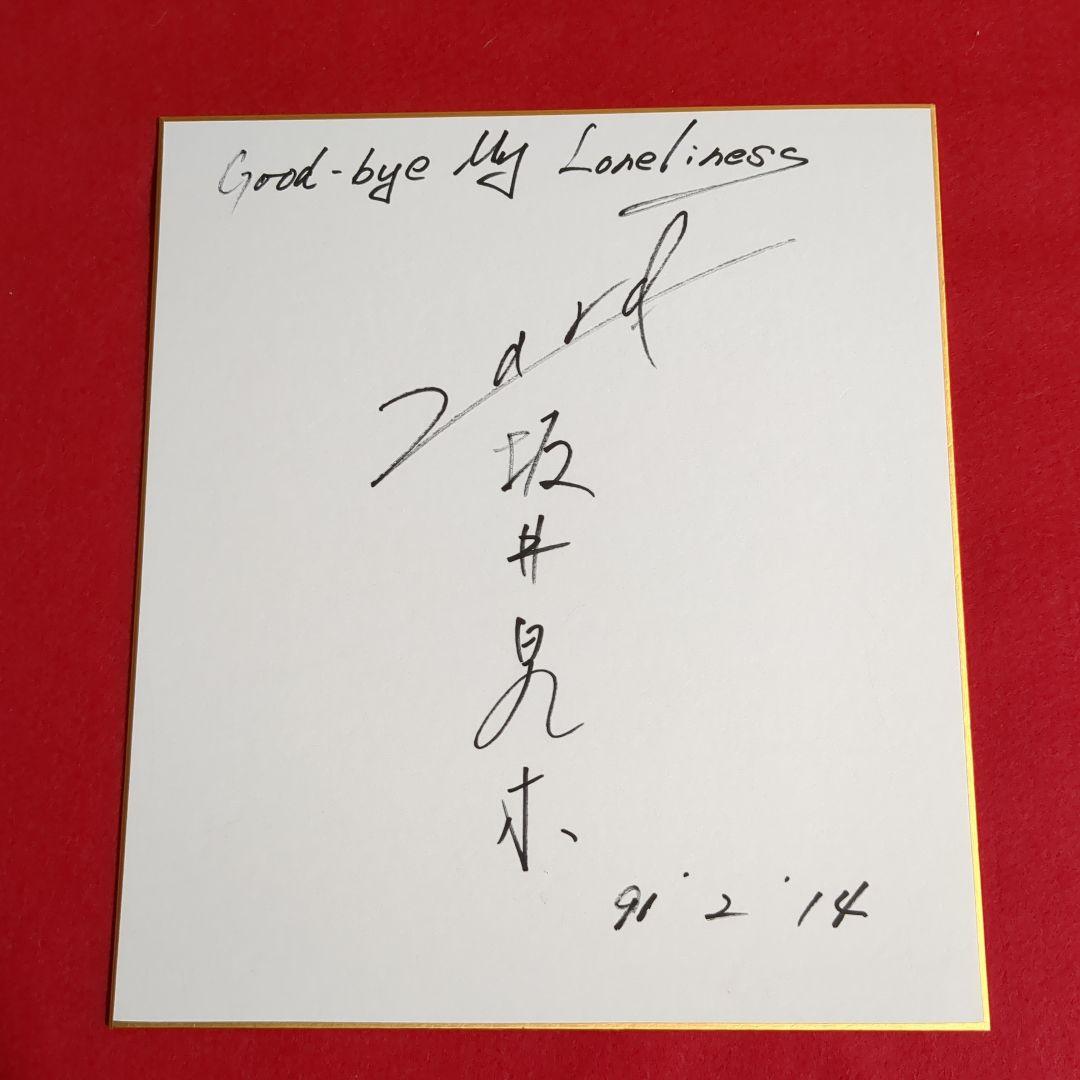 Good-bye My Loneliness
Zard
坂井泉水
91・2・14